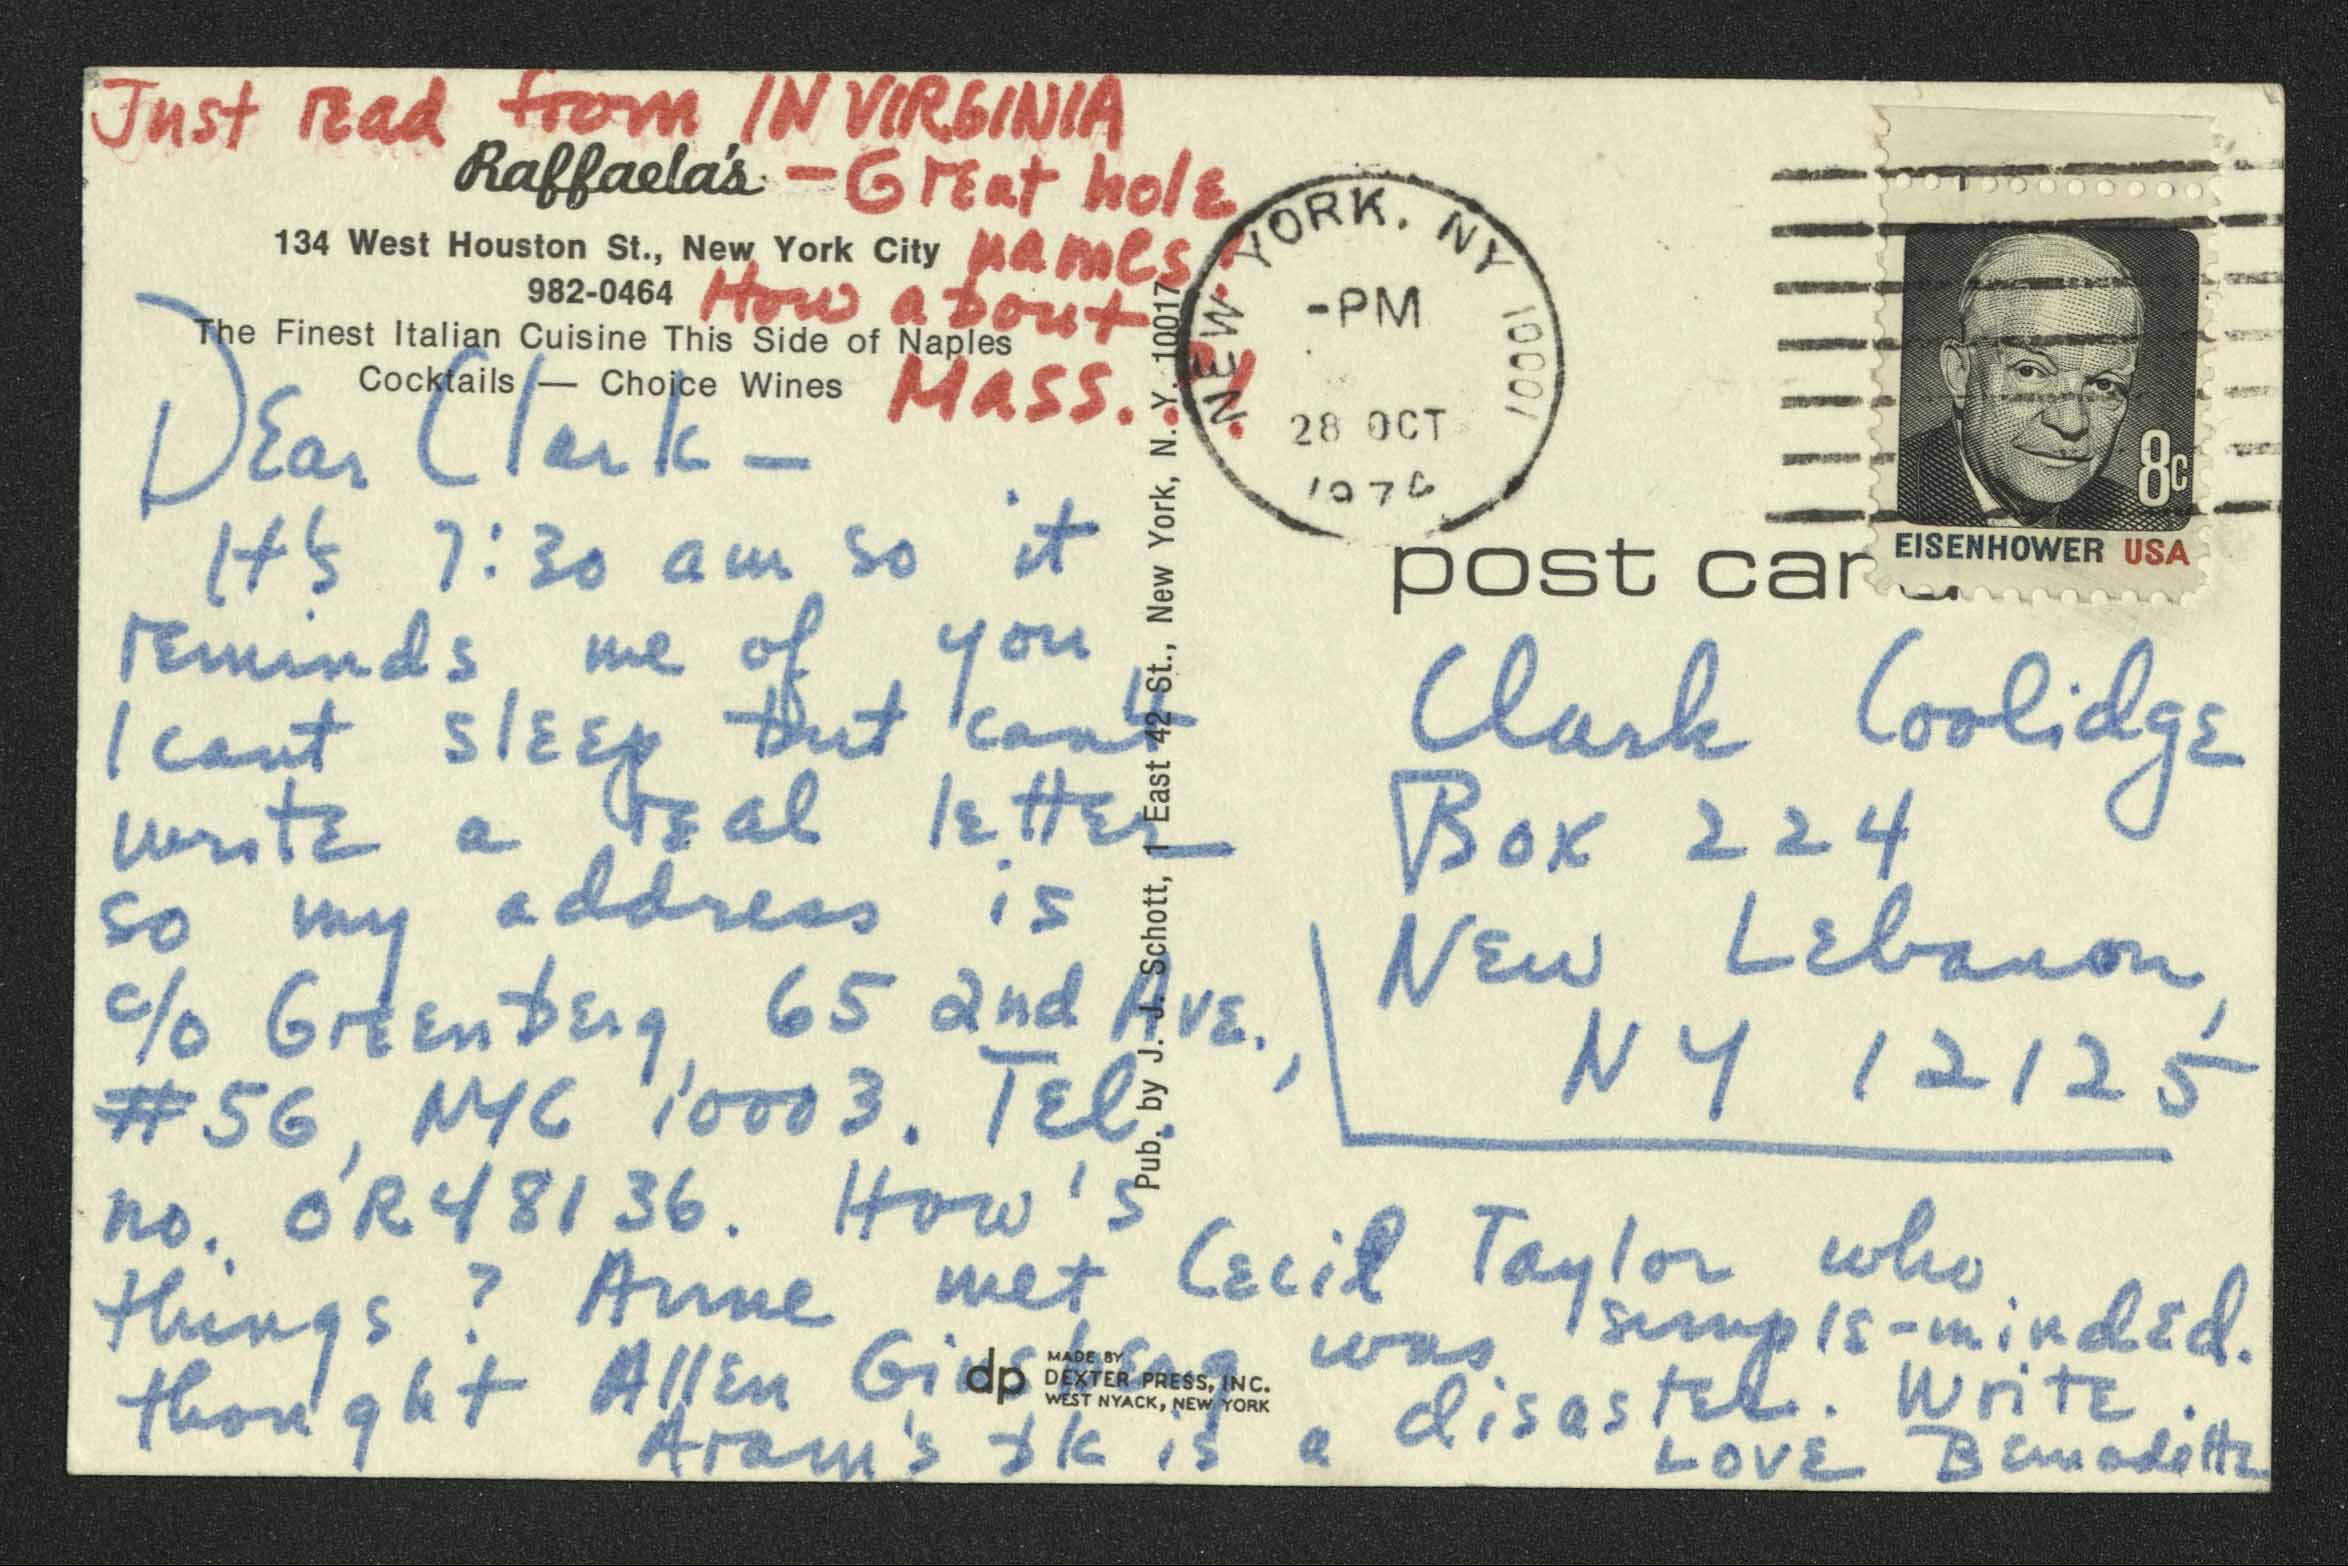 Just read from IN VIRGINIA
— Great hole
names!
How about
Mass..!
Raffaela's
134 West Houston St., New York City
982-0464
The Finest Italian Cuisine This Side of Naples
Cocktails — Choice Wines
Dear Clark —
It's 7:30 am so it
reminds me of you
I cant sleep but cant
write a real letter
so my address is
c/o Greenberg, 65 2nd Ave.,
#5G, NYC 10003. Tel.
no. OR48136. How's
things? Anne met Cecil Taylor who
thought Allen Ginsberg was simple-minded.
Aram's bk is a disaster. Write.
Love Bernadette
Pub. by J. J. Schott, 1 East 42 St., New York, N. Y. 10017
dp MADE BY
DEXTER PRESS, INC.
WEST NYACK, NEW YORK
NEW YORK, NY 10001
-PM
28 OCT
8c
EISENHOWER USA
post car
Clark Coolidge
Box 224
New Lebanon,
NY 12125